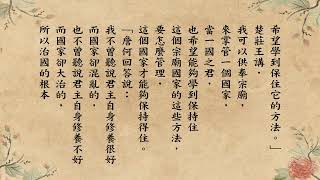 希望學到保住它的方法。」
楚莊王講，
我可以供奉宗廟，
來掌管一個國家，
當一國之君，
也希望能夠學到保住
這個宗廟國家的這些方法，
要怎麼管理，
這個國家才能夠保持得住。
「詹何回答說：
我不曾聽說君主自身修養很好
而國家卻混亂的，
也不曾聽說君主自身修養不好
而國家卻大治的，
所以治國的根本